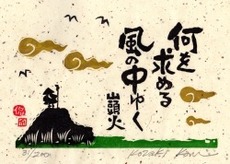 何を
求める
風の中ゆく
山頭火
31/200
Kozaki Kan